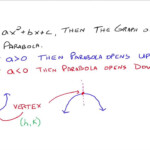 ax²+bx+c, THEN THE GRAPH O
PARABOLA.
a>0 THEN PARABOLA OPENS UP
a<0 THEN PARABOLA OPENS DOW
VERTEX
(h, K)